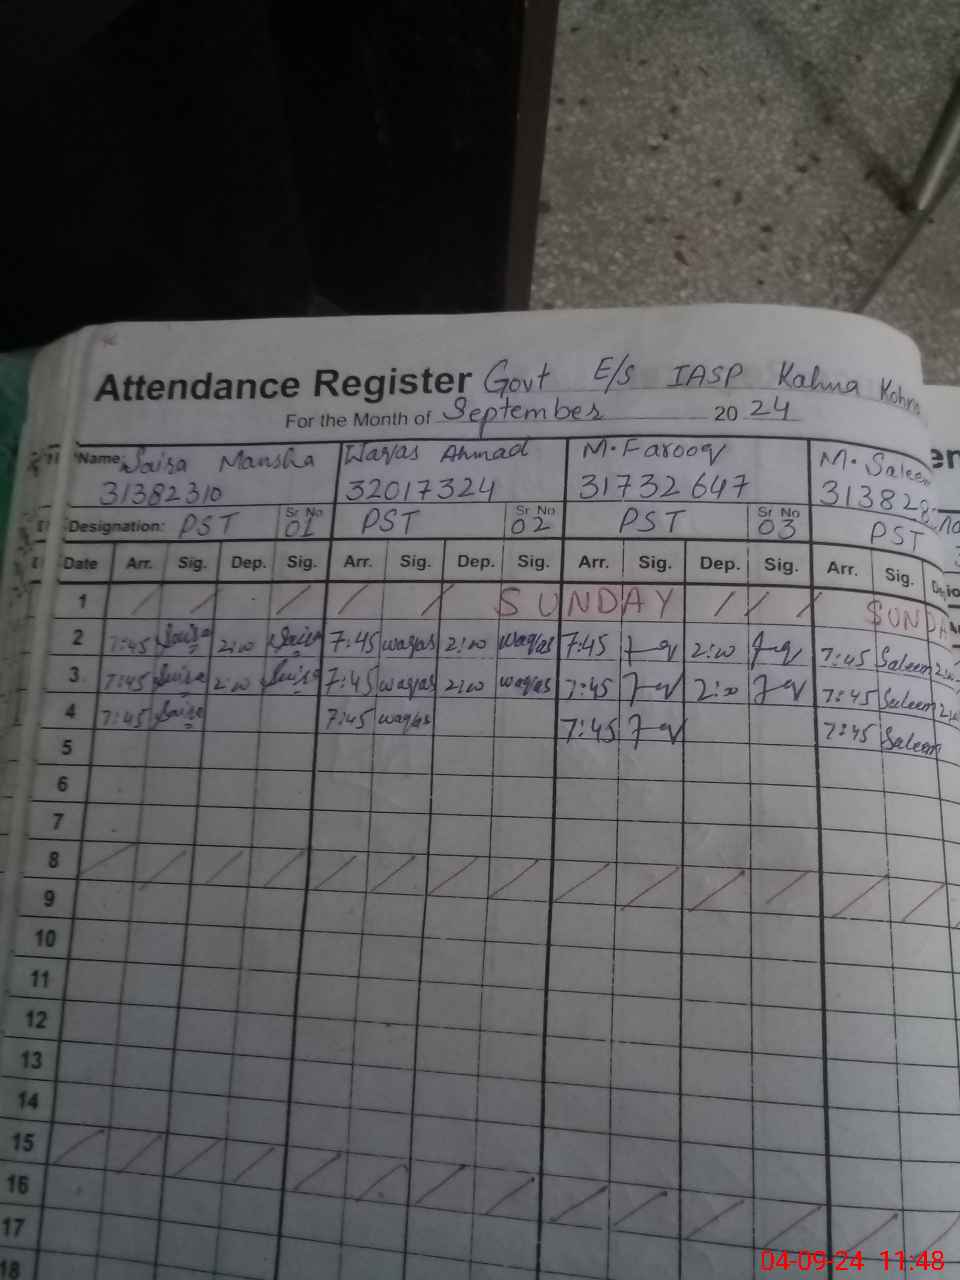 Attendance Register Govt E/S IASP Kahna Kohna
For the Month of September 20 24
Name: Saira Mansha Waqas Ahmad M. Farooq M. Saleem
31382310 32017324 31732647 31382
Designation: PST Sr No 01 PST Sr No 02 PST Sr No 03 PST
Date Arr. Sig. Dep. Sig. Arr. Sig. Dep. Sig. Arr. Sig. Dep. Sig. Arr. Sig.
1 SUNDAY SUNDA
2 7:45 Saira 2:00 Saira 7:45 waqas 2:00 waqas 7:45 2:00 7:45 Saleem
3 7:45 Saira 2:00 Saira 7:45 waqas 2:00 waqas 7:45 2:00 7:45 Saleem
4 7:45 Saira 7:45 waqas 7:45 7:45 Saleem
5
6
7
8
9
10
11
12
13
14
15
16
17
18
04-09-24 11:48